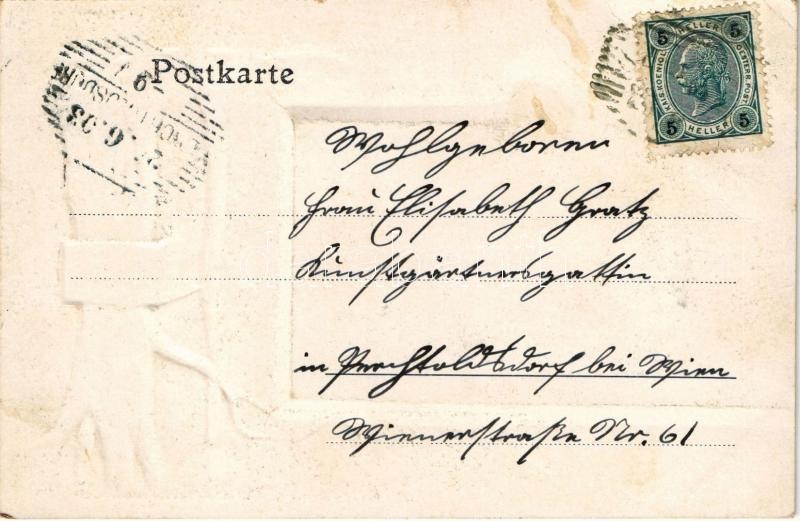 Postkarte
5 HELLER 5
KAIS. KOENIGL. OESTERR. POST.
5 HELLER 5
Wohlgeboren
Frau Elisabeth Gratz
Kunstgärtnersgattin
in Perchtoldsdorf bei Wien
Wienerstraße Nr. 61